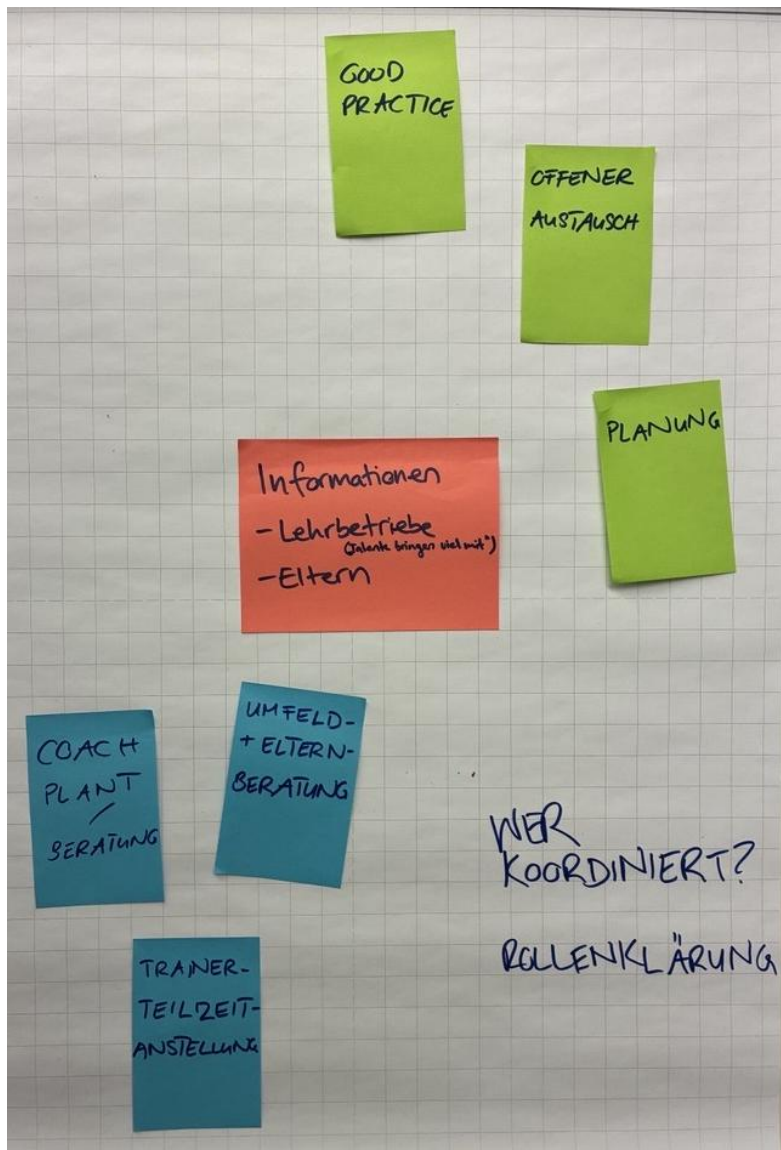 GOOD
PRACTICE
OFFENER
AUSTAUSCH
PLANUNG
Informationen
- Lehrbetriebe
(Talente bringen viel mit")
- Eltern
COACH
PLANT
/
BERATUNG
UMFELD-
+ ELTERN-
BERATUNG
TRAINER-
TEILZEIT-
ANSTELLUNG
WER
KOORDINIERT?
ROLLENKLÄRUNG